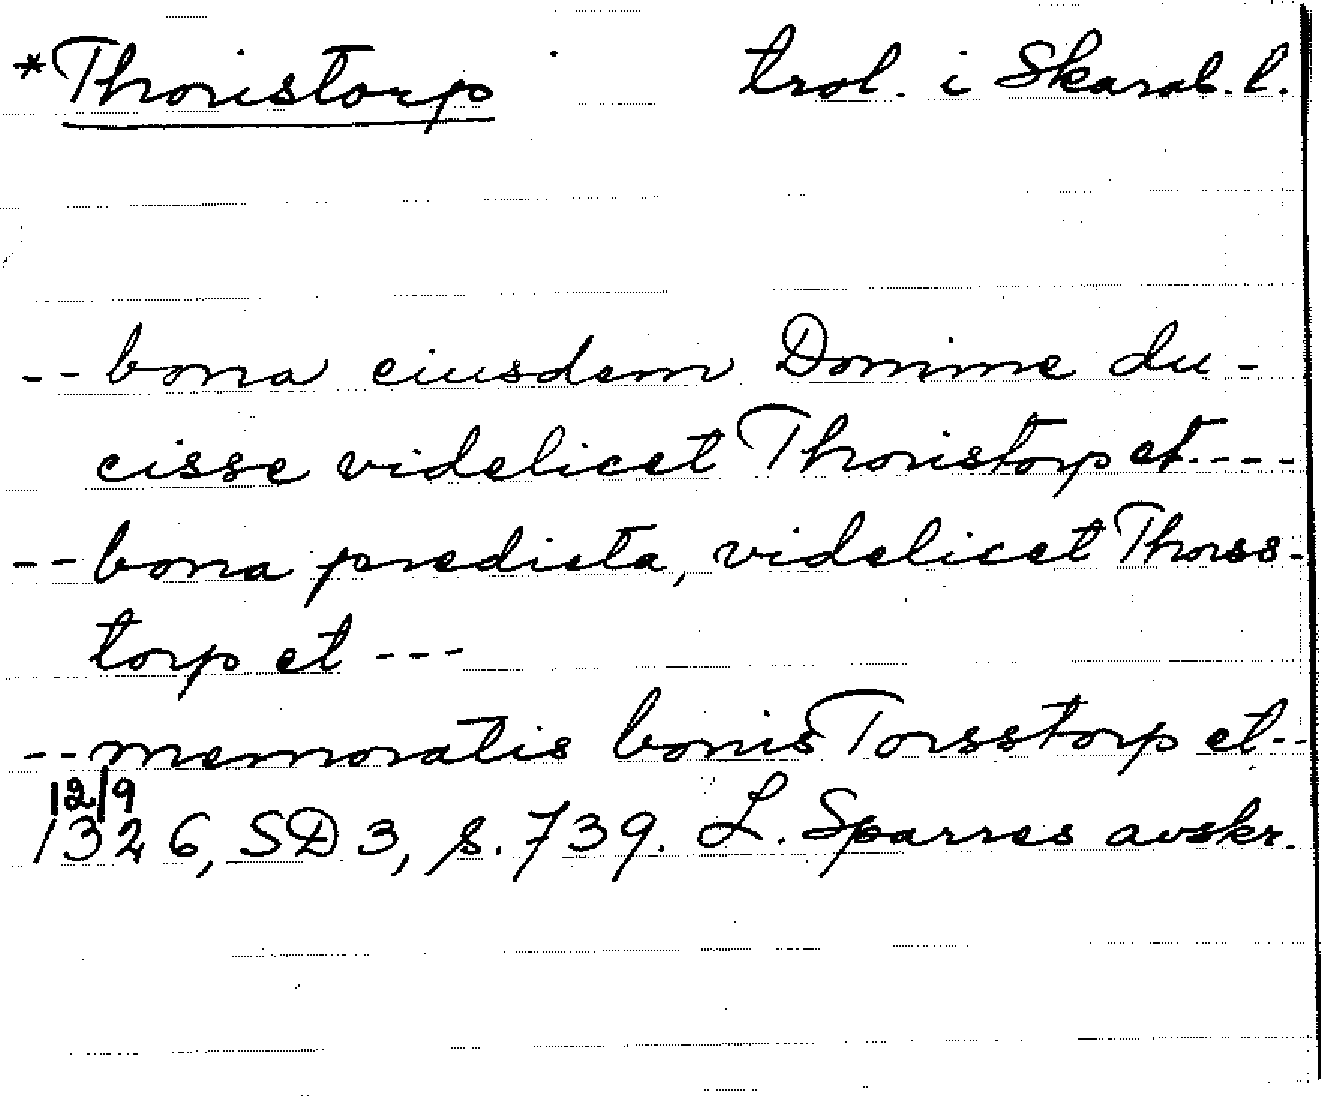 *Thoristorp trol. i Skarab. l.
-- bona eiusdem Domine du-
cisse videlicet Thoristorp et ----
-- bona predicta, videlicet Thorss-
torp et ---
-- memoratis bonis Torsstorp et --
12/9
1326, SD 3, s. 739. L. Sparres avskr.